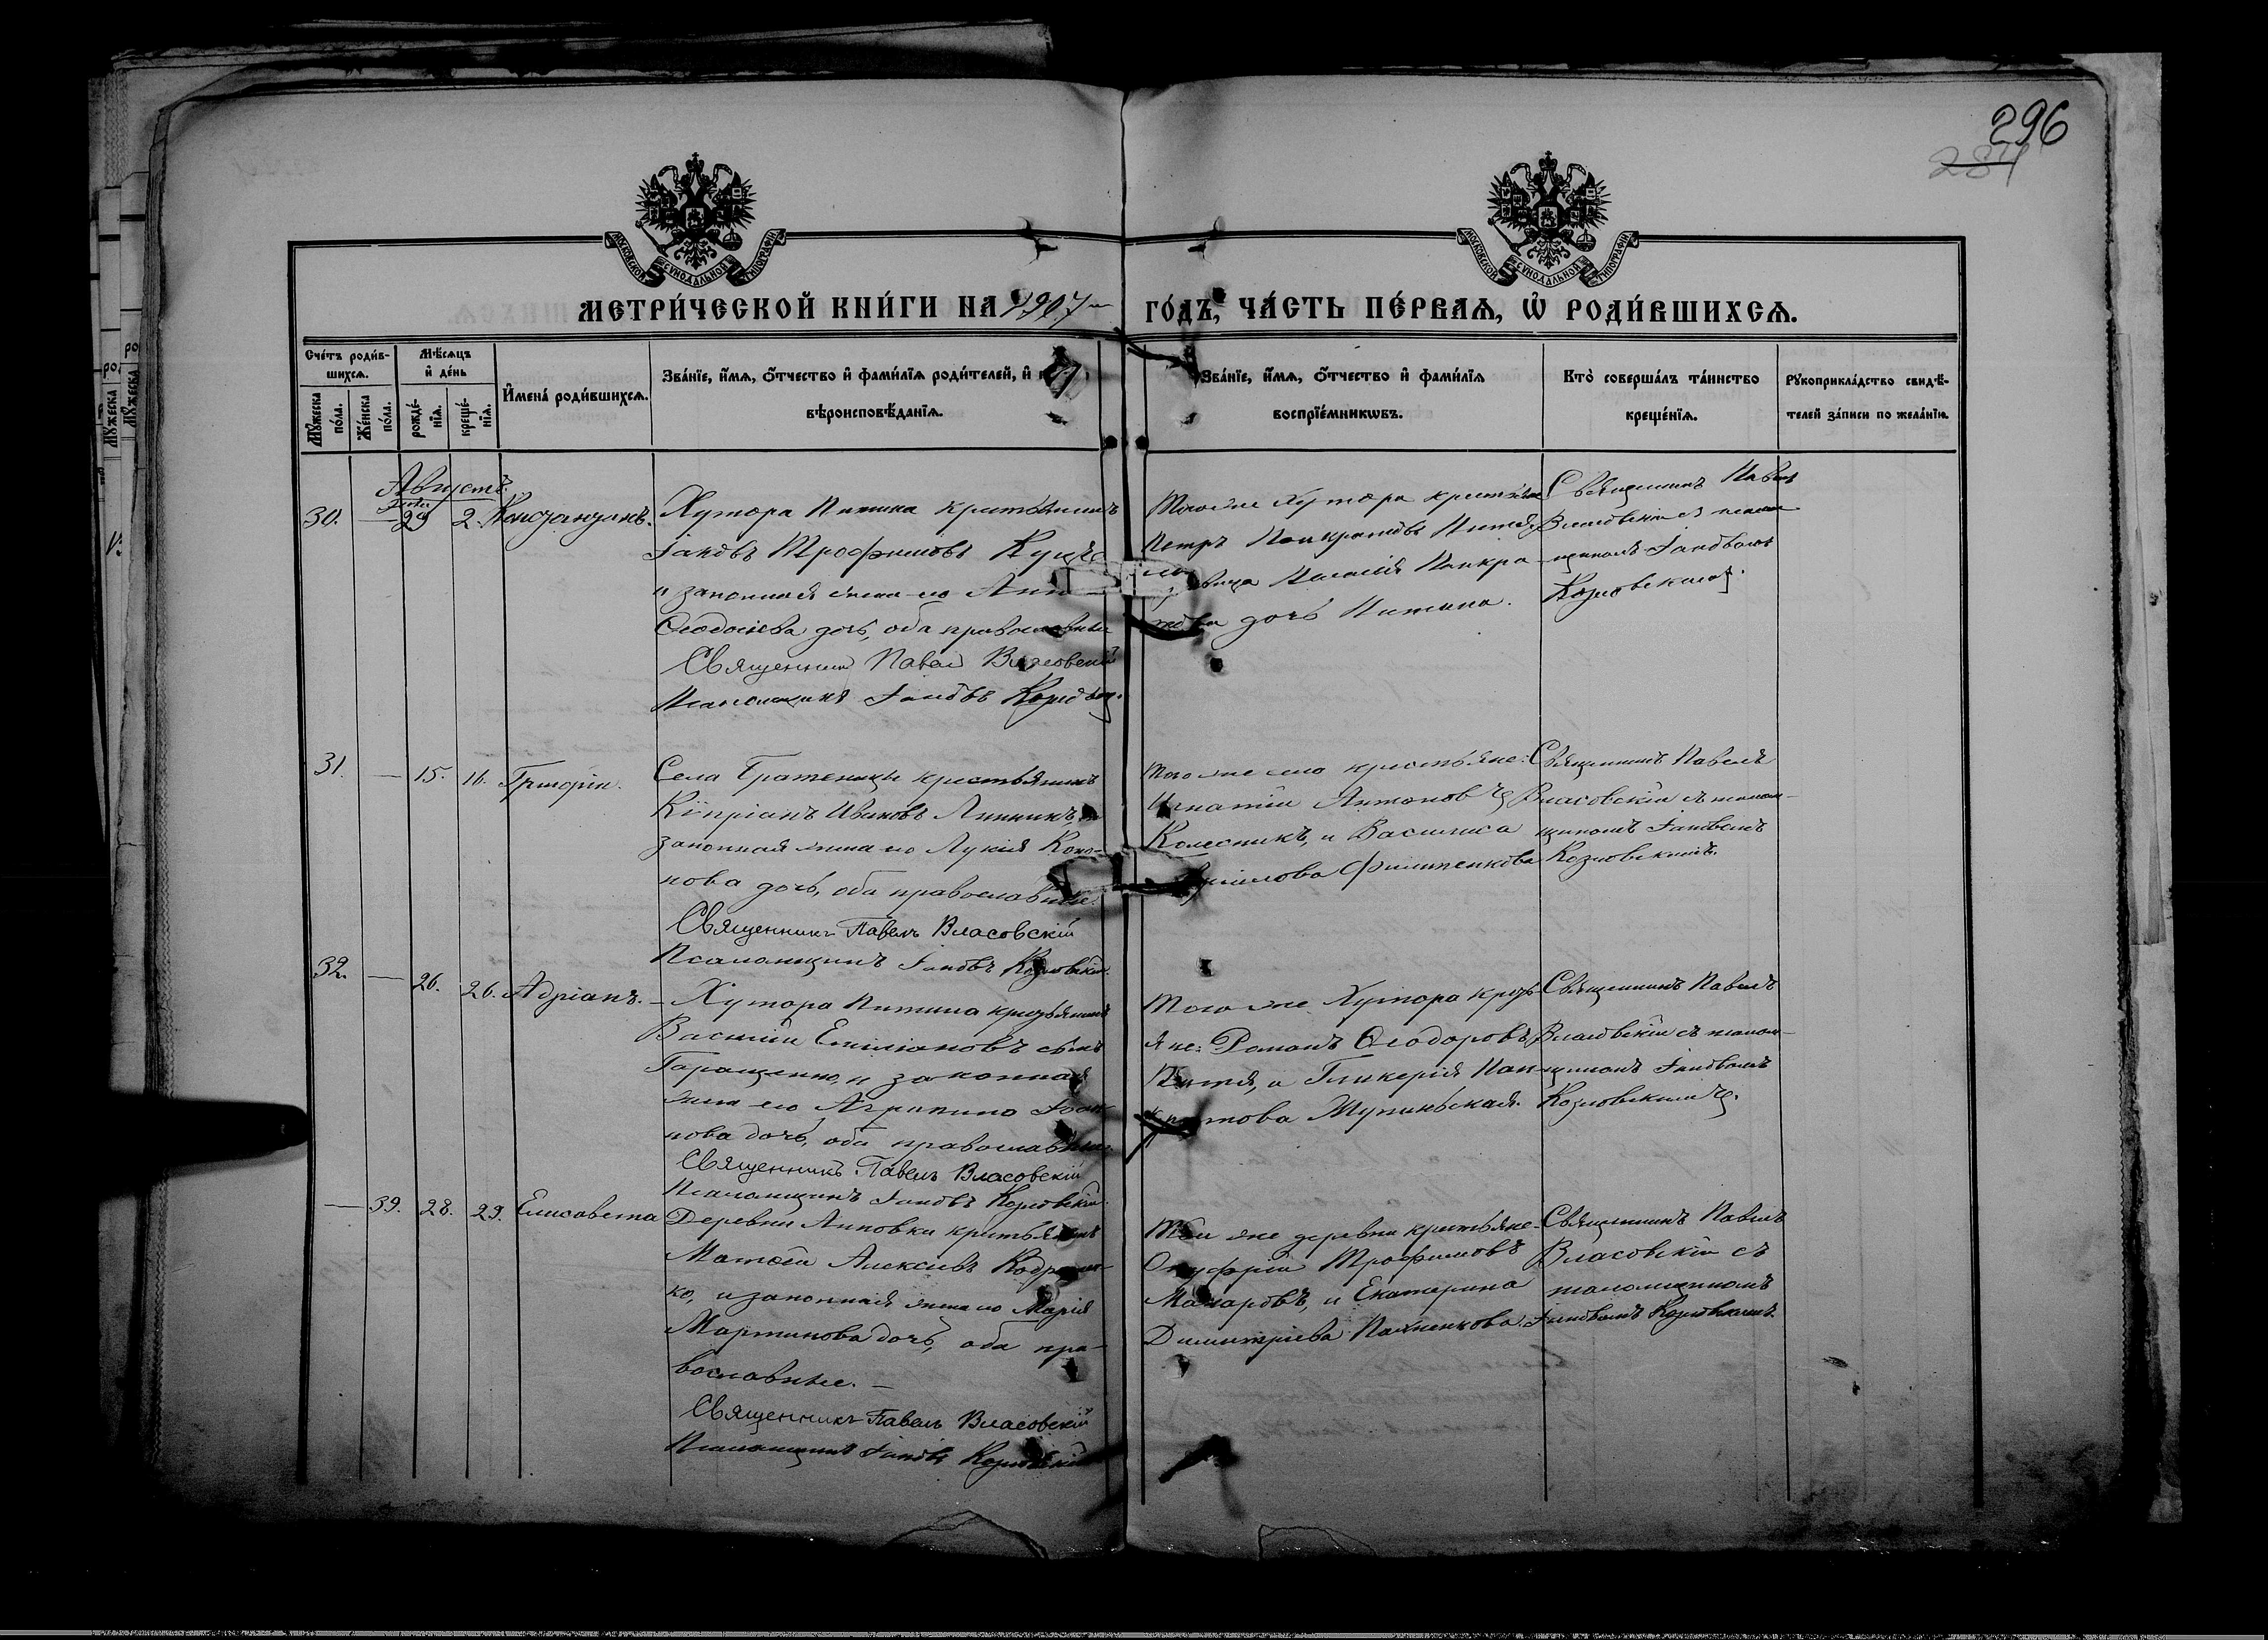 296
284
МОСКОВСКОЙ СУНОДАЛЬНОЙ ТИПОГРАФІИ
МОСКОВСКОЙ СУНОДАЛЬНОЙ ТИПОГРАФІИ
МЕТРИ́ЧЕСКОЙ КНИ́ГИ НА 1907
ГО́ДЪ, ЧА́СТЬ ПЕ́РВАѦ, Ѽ РОДИ́ВШИХСѦ.
Сче́тъ роди́в-
шихсѧ.
Мѣ́сѧцъ
и҆ де́нь
Мꙋ́жеска
по́ла.
Же́нска
по́ла.
рожде́-
нїѧ.
креще́-
нїѧ.
И҆мена̀ роди́вшихсѧ.
Зва́нїе, и҆́мѧ, ѻ҆́тчество и҆ фами́лїѧ роди́телей, и҆
вѣроисповѣ́данїѧ.
Зва́нїе, и҆́мѧ, ѻ҆́тчество и҆ фами́лїѧ
воспрїе́мникѡвъ.
Кто̀ соверша́лъ та́инство
креще́нїѧ.
Рꙋкоприкла́дство свидѣ́-
телей за́писи по жела́нїю.
Августъ.
30. — 29 2.
Хутора Питина крестьянинъ
Іаковъ Трофимовъ
и законная жена его
Ѳеодосіева дочь, оба православные
Священникъ Павелъ Власовскій
Псаломщикъ Іаковъ Козловскій.
Того же Хутора крестьяне
Петръ Панкратовъ
дочь Питина.
Священникъ Павелъ
Власовскій съ псалом-
щикомъ Іаковомъ
Козловскимъ.
31. — 15. 16. Григорій.
Села Братеницы крестьянинъ
Кипріанъ Ивановъ Линникъ, и
законная жена его Лукія Коно-
нова дочь, оба православные.
Священникъ Павелъ Власовскій
Псаломщикъ Іаковъ Козловскій.
Того же села крестьяне:
Игнатій Антоновъ
Колесникъ, и Василиса
Филипенкова
Священникъ Павелъ
Власовскій съ псалом-
щикомъ Іаковомъ
Козловскимъ.
32. — 26. 26. Адріанъ.
Хутора Питина крестьянинъ
Василій Емиліановъ сынъ
Гаращенко, и законная
жена его Агрипина Іоан-
нова дочь, оба православные.
Священникъ Павелъ Власовскій
Псаломщикъ Іаковъ Козловскій.
Того же Хутора кресть-
яне: Романъ Ѳеодоровъ
и Гликерія Пан-
кратова
Священникъ Павелъ
Власовскій съ псалом-
щикомъ Іаковомъ
Козловскимъ.
— 39. 28. 29. Елисавета
Деревни Липовки крестьянинъ
Матѳей Алексіевъ
ко, и законная жена его Марія
Мартинова дочь, оба пра-
вославные. —
Священникъ Павелъ Власовскій
Псаломщикъ Іаковъ Козловскій
Той же деревни крестьяне
Онуфрій Трофимовъ
Макаровъ, и Екатерина
Димитріева
Священникъ Павелъ
Власовскій съ
псаломщикомъ
Іаковомъ Козловскимъ.